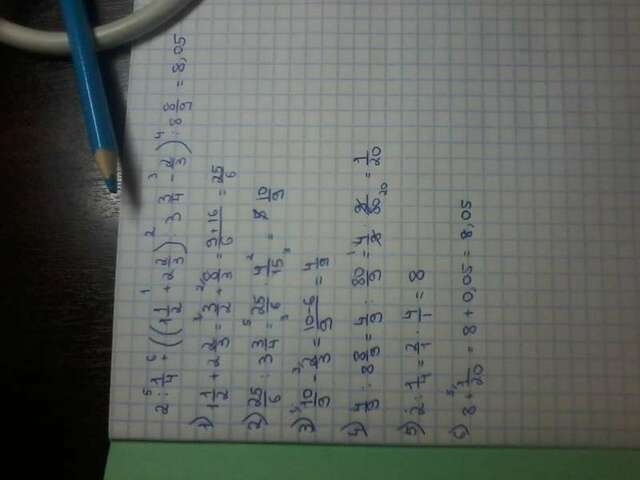 2 : 1/4 + ((1 1/2 + 2 2/3) : 3 3/4 - 2/3) : 8 8/9 = 8,05
1) 1 1/2 + 2 2/3 = 3/2 + 8/3 = 9+16/6 = 25/6
2) 25/6 : 3 3/4 = 25/6 · 4/15 = 10/9
3) 10/9 - 2/3 = 10-6/9 = 4/9
4) 4/9 : 8 8/9 = 4/9 : 80/9 = 4/9 · 9/80 = 1/20
5) 2 : 1/4 = 2/1 · 4/1 = 8
6) 8 + 1/20 = 8 + 0,05 = 8,05